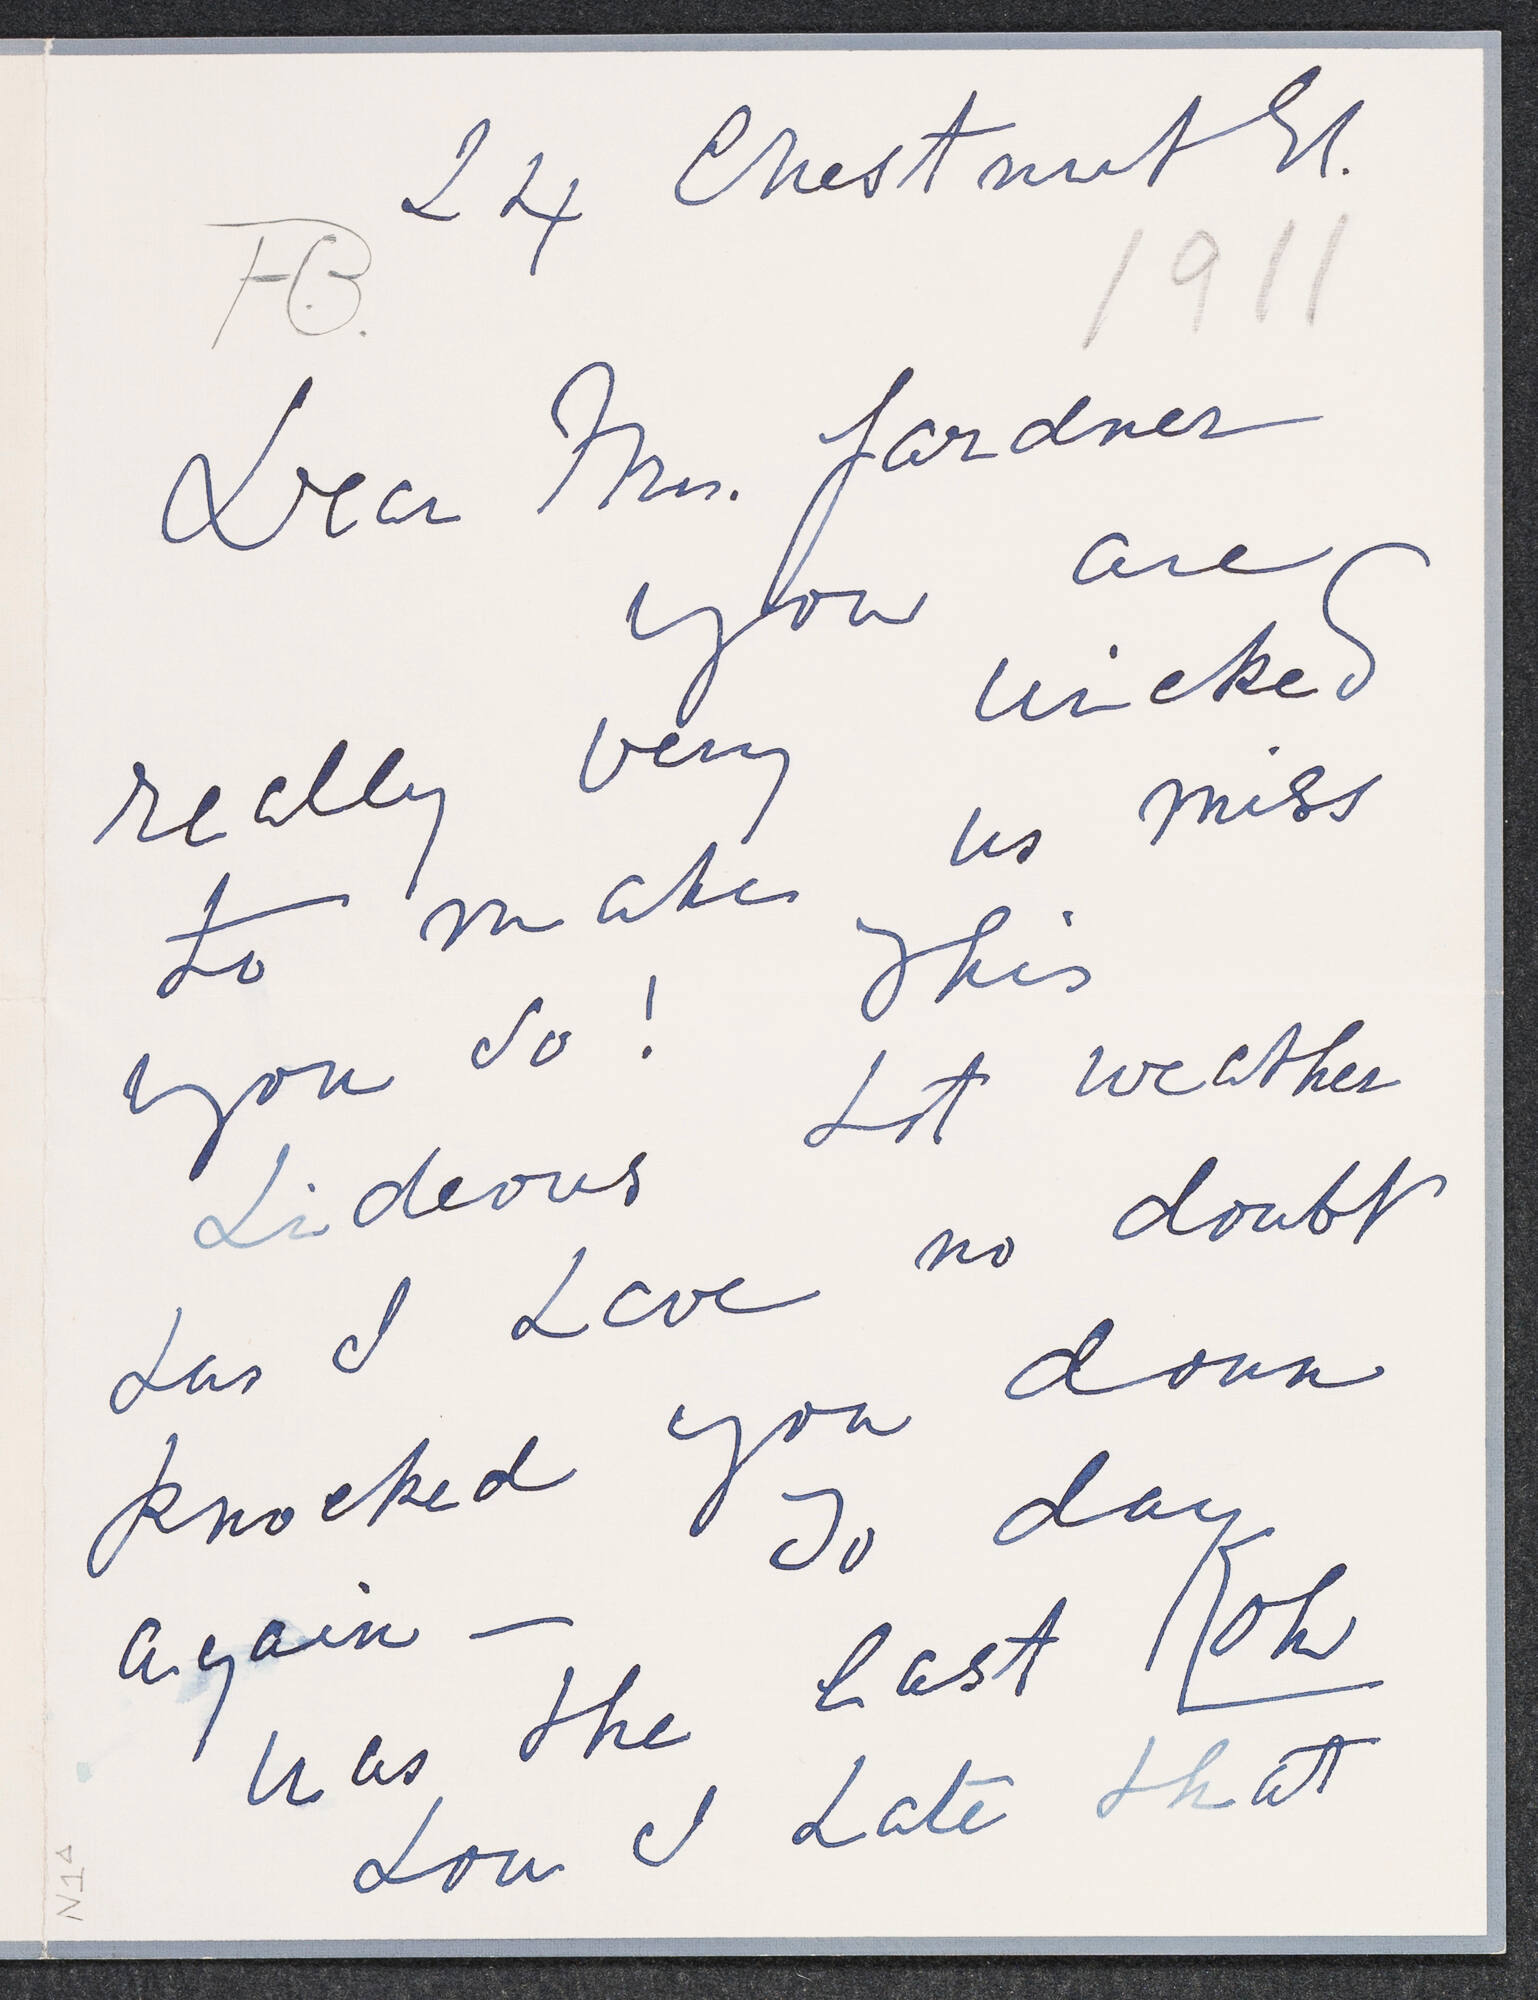 24 Chestnut St.
F.B.
1911
Dear Mrs. Gardner
you are
really very wicked
to make us miss
you so! This
hideous hot weather
has I have no doubt
knocked you down
again — To day
was the last Oh
how I hate that